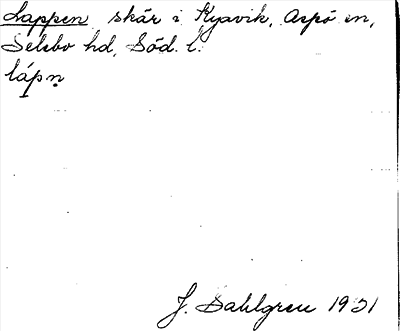 Lappen skär i Kyrvik, Aspö sn,
Selebo hd, Söd. l.
lápṇ
J. Dahlgren 1931